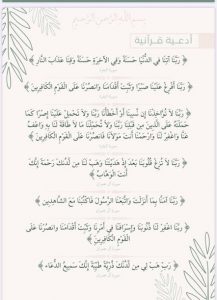 بسم الله الرحمن الرحيم
أدعية قرآنية
﴿ رَبَّنَا آتِنَا فِي الدُّنْيَا حَسَنَةً وَفِي الْآخِرَةِ حَسَنَةً وَقِنَا عَذَابَ النَّارِ ﴾
﴿ رَبَّنَا أَفْرِغْ عَلَيْنَا صَبْرًا وَثَبِّتْ أَقْدَامَنَا وَانْصُرْنَا عَلَى الْقَوْمِ الْكَافِرِينَ ﴾
﴿ رَبَّنَا لَا تُؤَاخِذْنَا إِنْ نَسِينَا أَوْ أَخْطَأْنَا رَبَّنَا وَلَا تَحْمِلْ عَلَيْنَا إِصْرًا كَمَا
حَمَلْتَهُ عَلَى الَّذِينَ مِنْ قَبْلِنَا رَبَّنَا وَلَا تُحَمِّلْنَا مَا لَا طَاقَةَ لَنَا بِهِ وَاعْفُ
عَنَّا وَاغْفِرْ لَنَا وَارْحَمْنَا أَنْتَ مَوْلَانَا فَانْصُرْنَا عَلَى الْقَوْمِ الْكَافِرِينَ ﴾
﴿ رَبَّنَا لَا تُزِغْ قُلُوبَنَا بَعْدَ إِذْ هَدَيْتَنَا وَهَبْ لَنَا مِنْ لَدُنْكَ رَحْمَةً إِنَّكَ
أَنْتَ الْوَهَّابُ ﴾
﴿ رَبَّنَا آمَنَّا بِمَا أَنْزَلْتَ وَاتَّبَعْنَا الرَّسُولَ فَاكْتُبْنَا مَعَ الشَّاهِدِينَ ﴾
﴿ رَبَّنَا اغْفِرْ لَنَا ذُنُوبَنَا وَإِسْرَافَنَا فِي أَمْرِنَا وَثَبِّتْ أَقْدَامَنَا وَانْصُرْنَا عَلَى
الْقَوْمِ الْكَافِرِينَ ﴾
﴿ رَبِّ هَبْ لِي مِنْ لَدُنْكَ ذُرِّيَّةً طَيِّبَةً إِنَّكَ سَمِيعُ الدُّعَاءِ ﴾